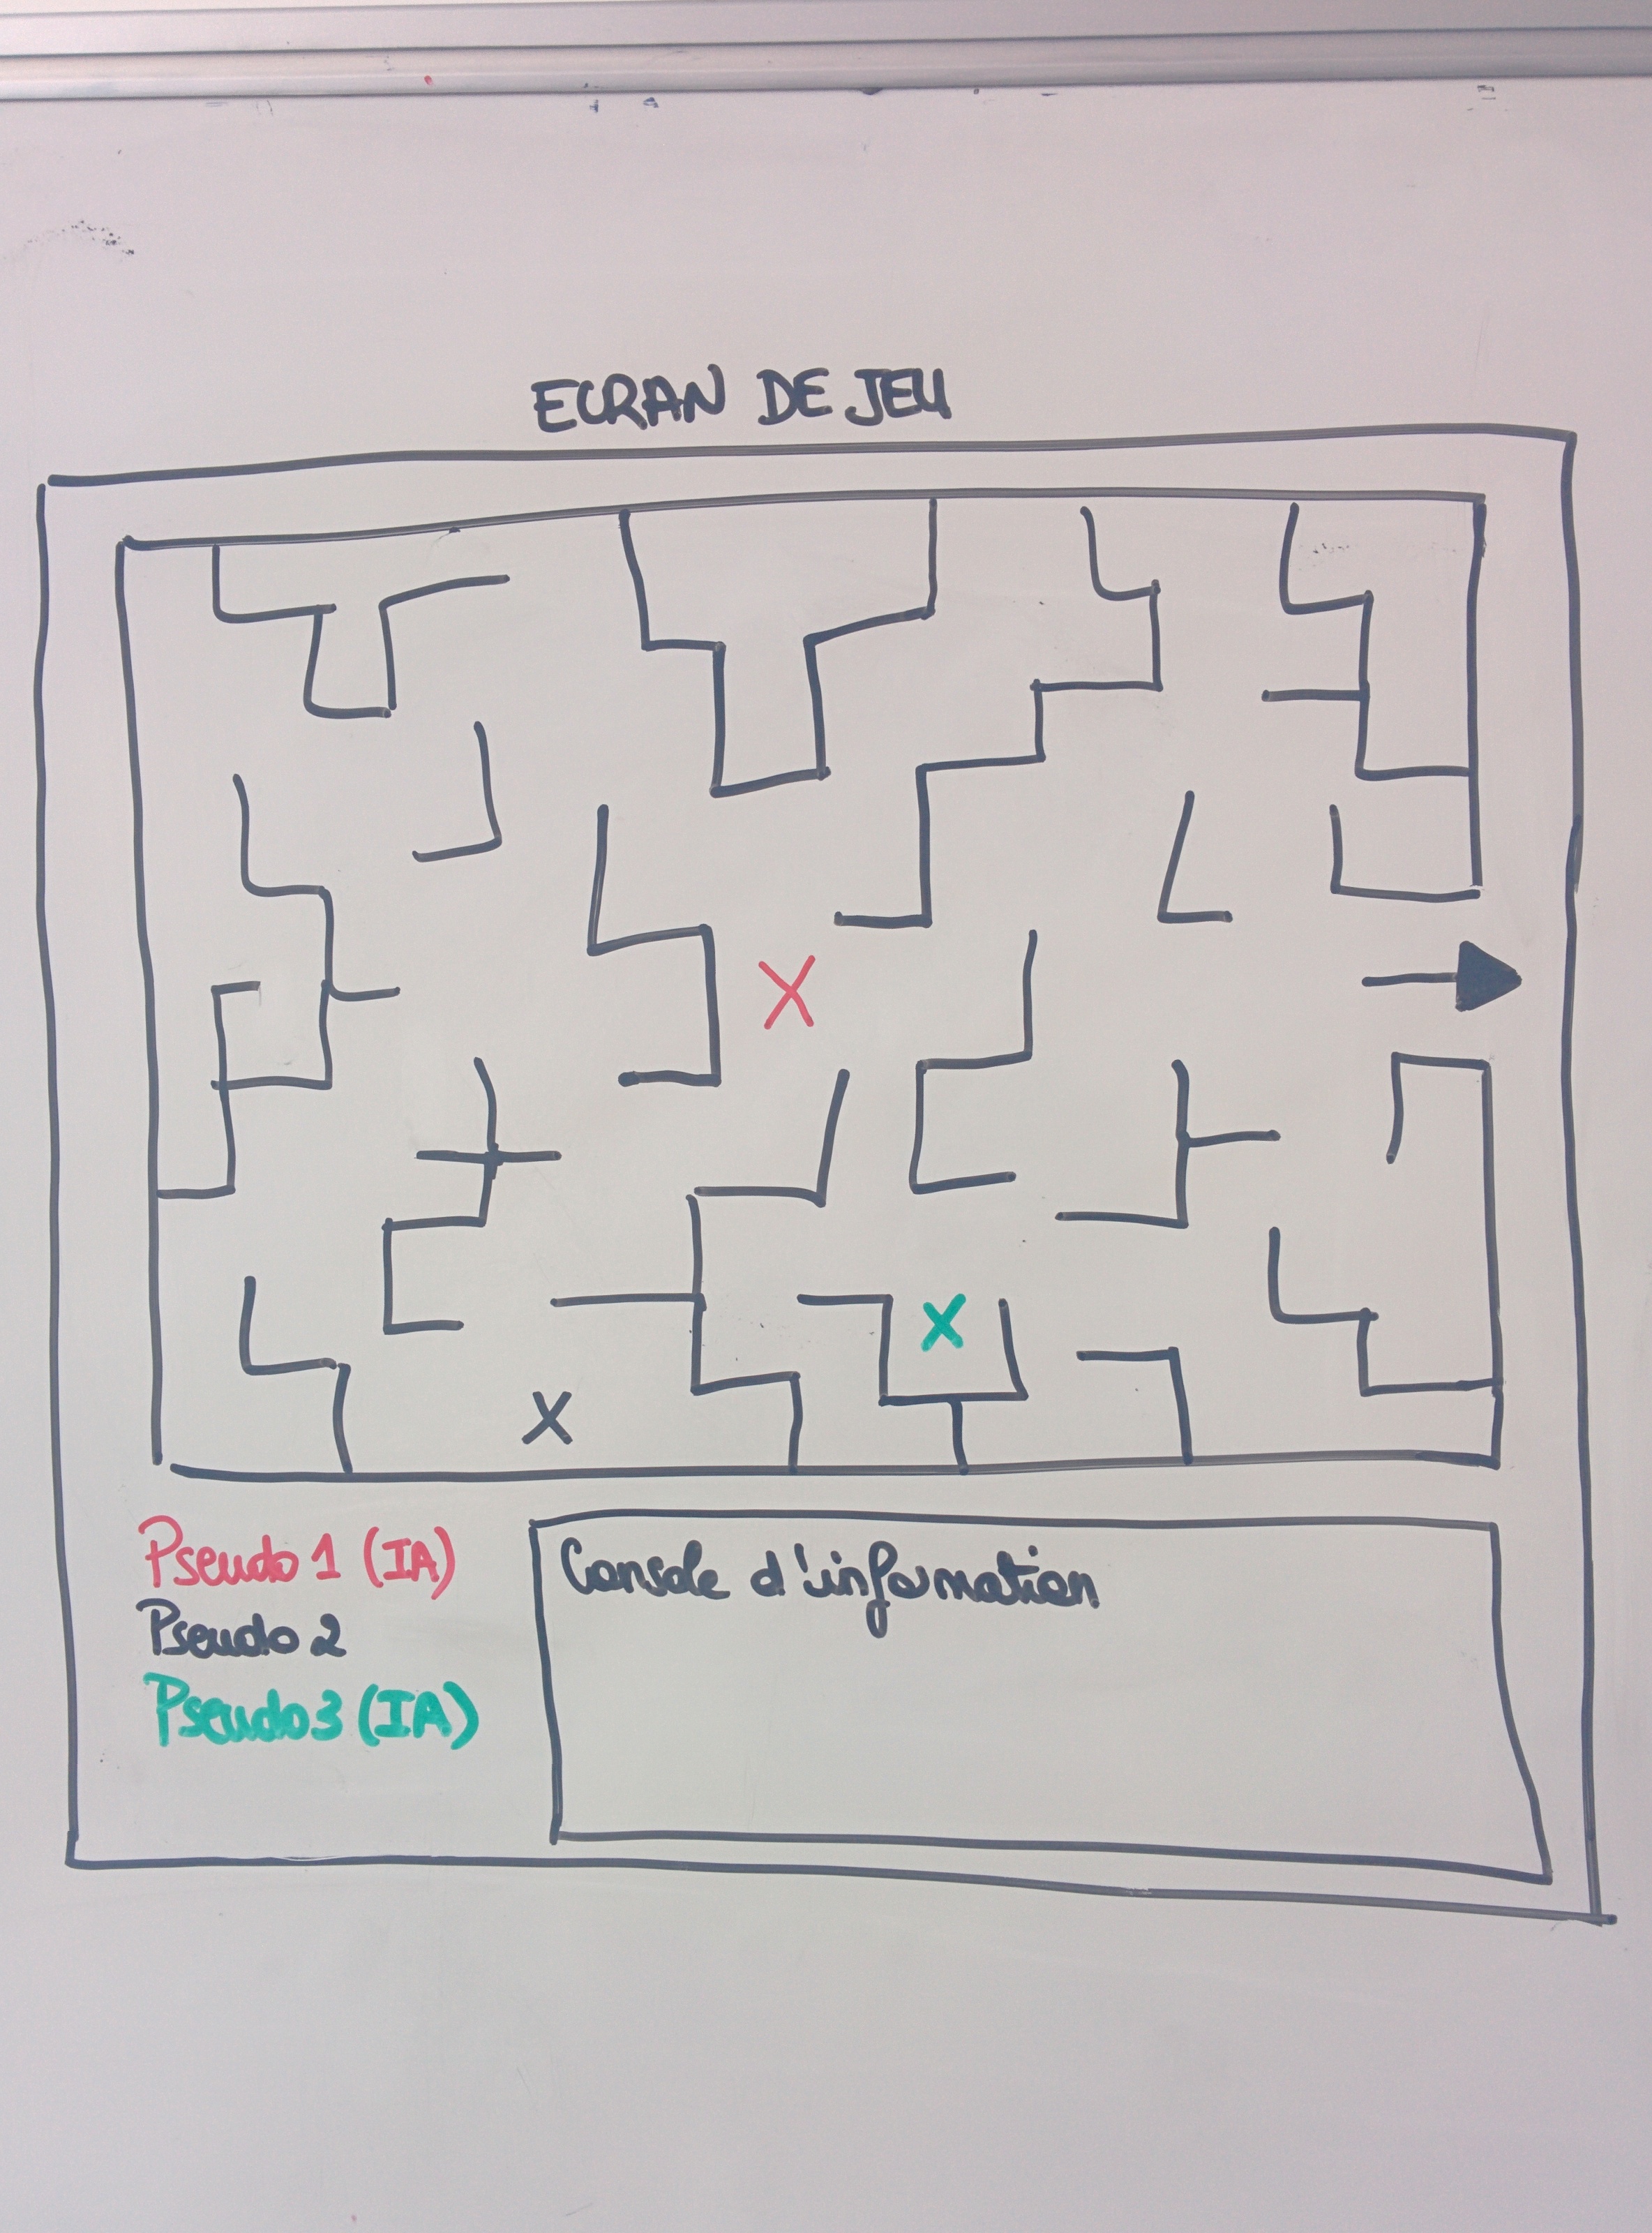 ECRAN DE JEU
Pseudo 1 (IA)
Pseudo 2
Pseudo 3 (IA)
Console d'information